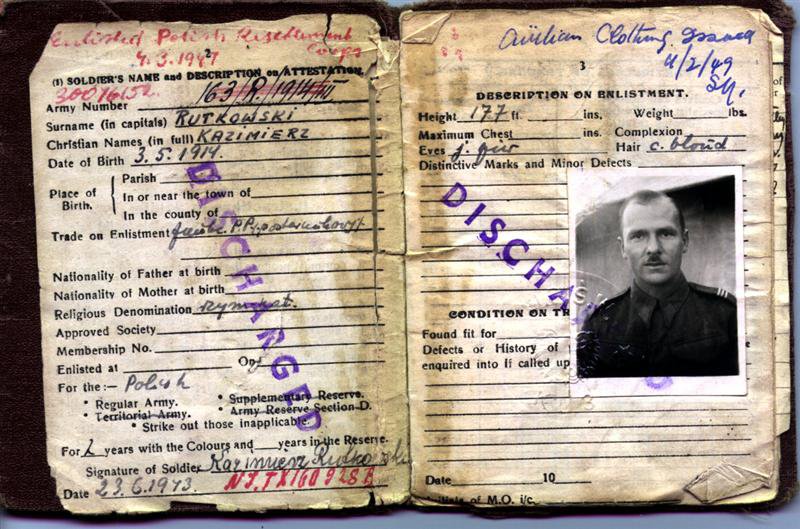 Enlisted Polish Resettlement
Corps
4.3.1947
(1) SOLDIER'S NAME and DESCRIPTION on ATTESTATION.
30076152
Army Number 163/R/1914/III
Surname (in capitals) RUTKOWSKI
Christian Names (in full) KAZIMIERZ
Date of Birth 3.5.1914.
Place of Birth.
Parish
In or near the town of
In the county of
Trade on Enlistment
Nationality of Father at birth
Nationality of Mother at birth
Religious Denomination rzym. kat.
Approved Society
Membership No.
Enlisted at On
For the :— Polish
* Regular Army. * Supplementary Reserve.
* Territorial Army. * Army Reserve Section D.
* Strike out those inapplicable.
For years with the Colours and years in the Reserve.
Signature of Soldier Kazimierz Rutkowski
Date 23.6.1943. N.I. TX160928E
DISCHARGED
Civilian Clothing Issued
4/2/49
3
DESCRIPTION ON ENLISTMENT.
Height 177 ft. ins. Weight lbs.
Maximum Chest ins. Complexion
Eyes j. piw Hair c. blond
Distinctive Marks and Minor Defects
DISCHA
CONDITION ON TR
Found fit for
Defects or History of
enquired into if called up
Date 10
Initials of M.O. i/c.